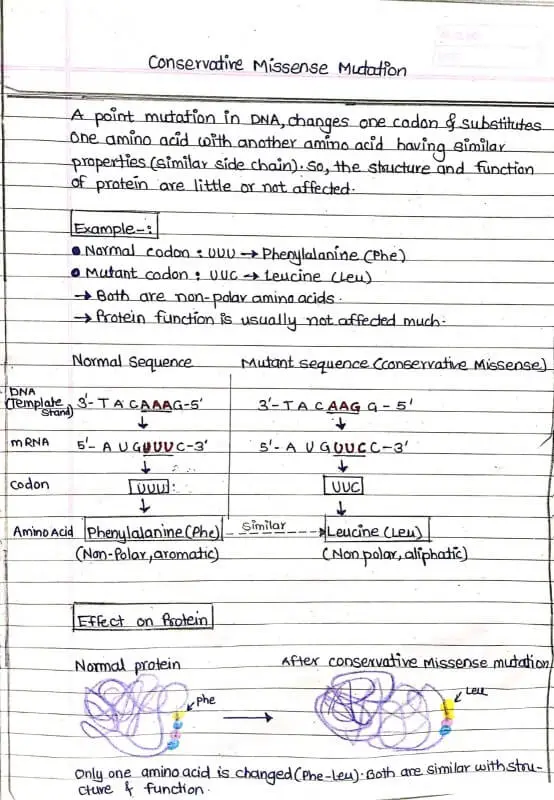 Conservative Missense Mutation
A point mutation in DNA, changes one codon & substitutes
one amino acid with another amino acid having similar
properties (similar side chain). So, the structure and function
of protein are little or not affected.
Example-:
• Normal codon : UUU → Phenylalanine (Phe)
• Mutant codon : UUC → Leucine (Leu)
→ Both are non-polar amino acids.
→ Protein function is usually not affected much.
Normal Sequence Mutant sequence (conservative Missense)
DNA (Template Stand) 3'- T A C A A A G - 5' 3'- T A C A A G G - 5'
mRNA 5'- A U G U U U C - 3' 5'- A U G U U C C - 3'
codon UUU UUC
Amino Acid Phenylalanine (Phe) Similar Leucine (Leu)
(Non-Polar, aromatic) (Non polar, aliphatic)
Effect on Protein
Normal protein After conservative Missense mutation
Phe Leu
Only one amino acid is changed (Phe-Leu). Both are similar with stru-
cture & function.